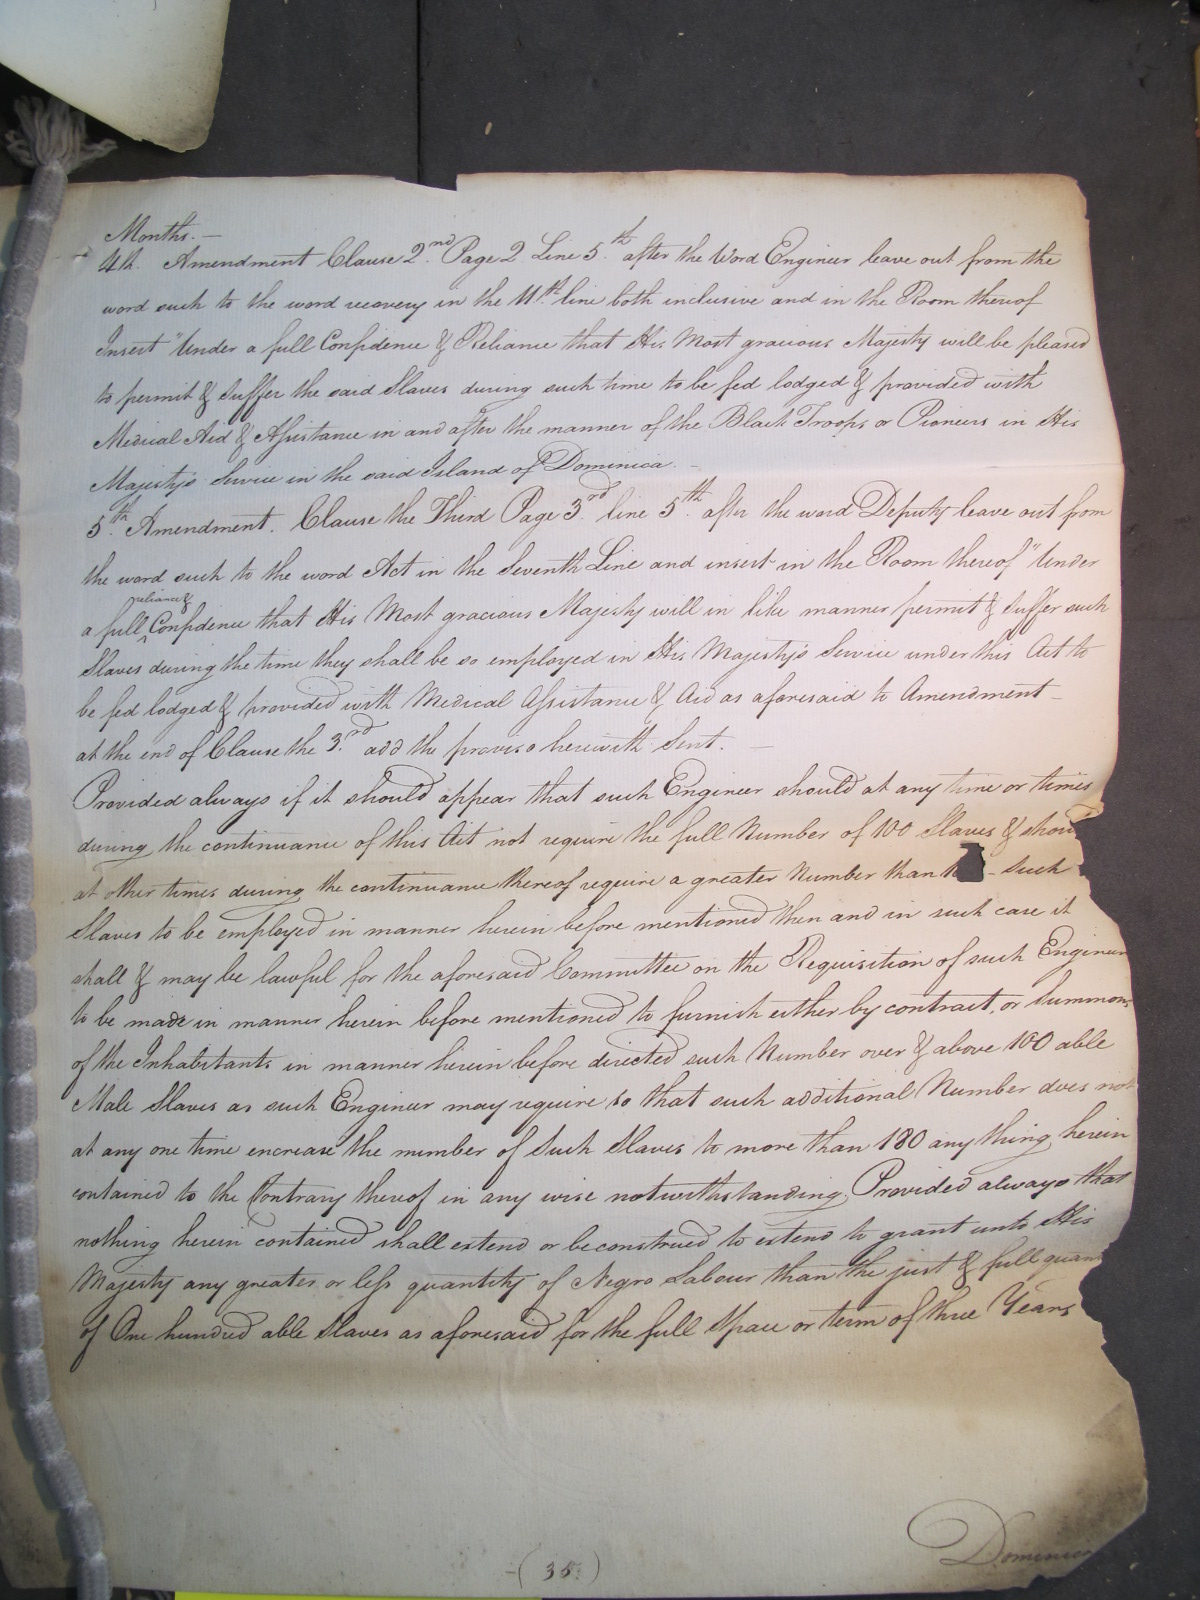 Months. —
4th. Amendment Clause 2nd. Page 2 Line 5th. after the Word Engineer leave out from the
word such to the word recovery in the 11th line both inclusive and in the Room thereof
Insert "Under a full Confidence & Reliance that His Most gracious Majesty will be pleased
to permit & suffer the said Slaves during such time to be fed lodged & provided with
Medical Aid & Assistance in and after the manner of the Black Troops or Pioneers in His
Majesty's Service in the said Island of Dominica. —
5th. Amendment. Clause the Third Page 3rd line 5th. after the word Deputy leave out from
the word such to the word Act in the Seventh Line and insert in the Room thereof "Under
reliance &
a full ^ Confidence that His Most gracious Majesty will in like manner permit & suffer such
Slaves during the time they shall be so employed in His Majesty's Service under this Act to
be fed lodged & provided with Medical Assistance & Aid as aforesaid to Amendment —
at the end of Clause the 3rd. add the proviso herewith Sent. —
Provided always if it should appear that such Engineer should at any time or times
during the continuance of this Act not require the full Number of 100 Slaves & shou
at other times during the continuance thereof require a greater Number than 1 - such
Slaves to be employed in manner herein before mentioned then and in such case it
shall & may be lawful for the aforesaid Committee on the Requisition of such Engineer
to be made in manner herein before mentioned to furnish either by contract, or Summons
of the Inhabitants in manner herein before directed such Number over & above 100 able
Male Slaves as such Engineer may require so that such additional Number does not
at any one time encrease the number of Such Slaves to more than 180 any thing herein
contained to the Contrary thereof in any wise notwithstanding, Provided always that
nothing herein contained shall extend or be construed to extend to grant unto His
Majesty any greater or less quantity of Negro Labour than the just & full quan
of One hundred able Slaves as aforesaid for the full Space or term of three Years
Dominica
-(35.)